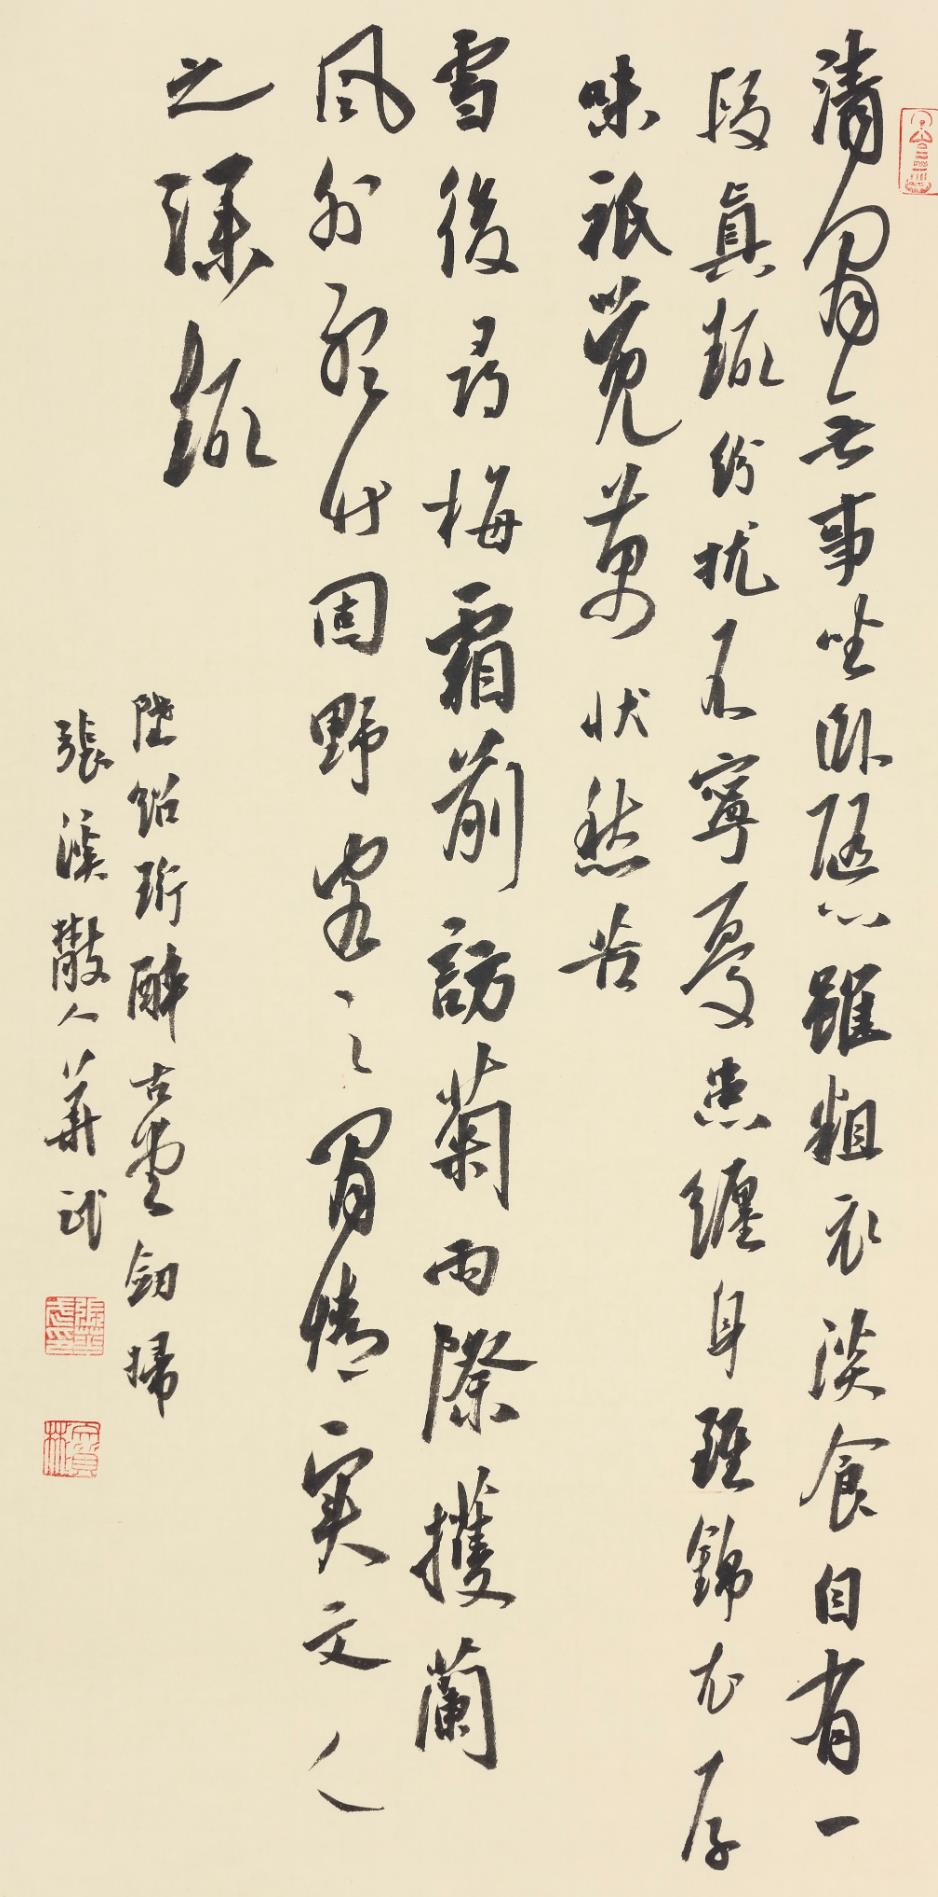 清閒無事坐臥隨心雖粗衣淡食自有一
段眞趣紛扰不寧憂患纏身雖錦衣厚
味祇覺萬狀愁苦
雪後尋梅霜前訪菊雨際擭蘭
風外聽竹固野客之閒情實文人
之深趣
陸紹珩醉古堂劍掃
張溪散人華武